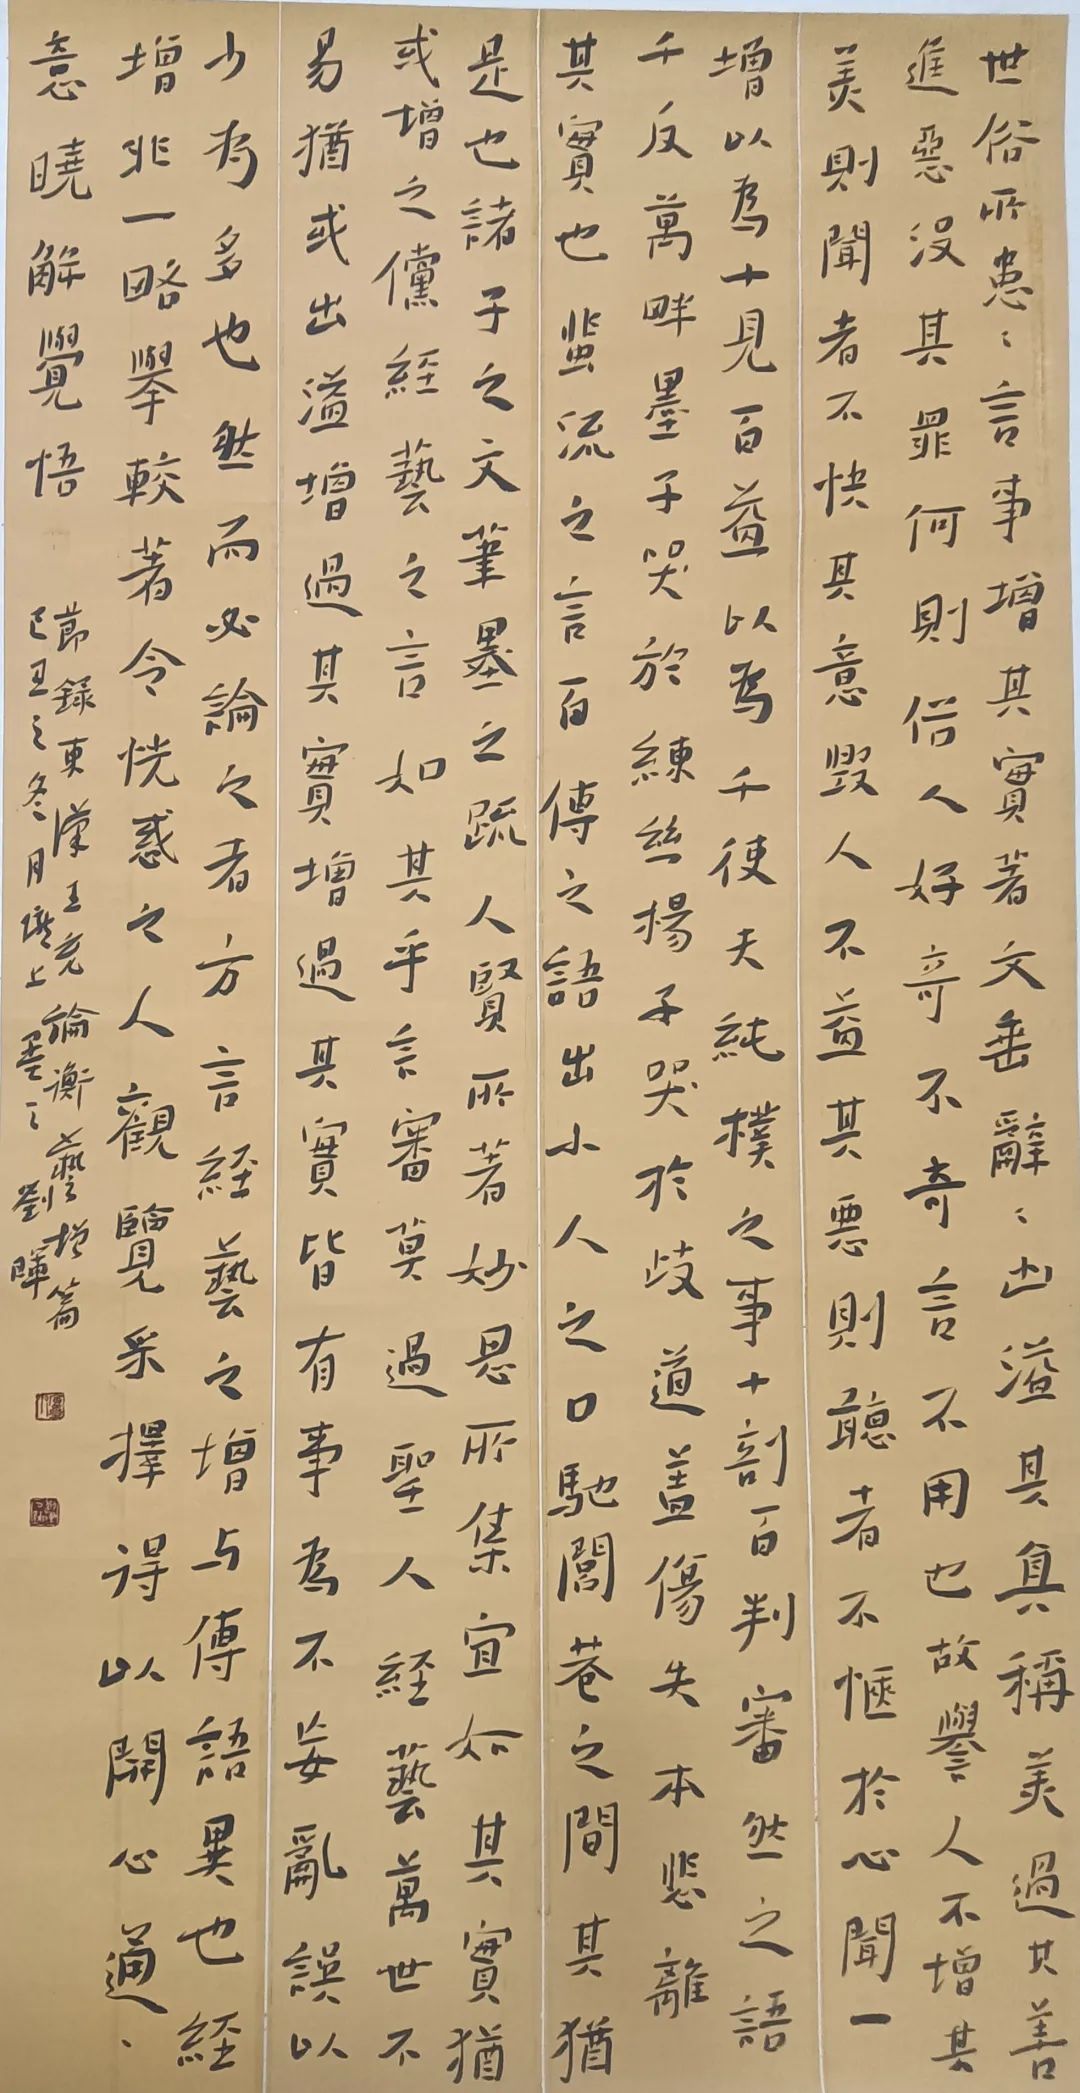 世俗所患患言事增其實著文垂辭辭出溢其真稱美過其善
進惡没其罪何則俗人好奇不奇言不用也故譽人不增其
美則聞者不快其意毀人不益其惡則聽者不愜於心聞一
增以為十見百益以為千使夫純樸之事十剖百判審然之語
千反萬畔墨子哭於練絲楊子哭於歧道蓋傷失本悲離
其實也蜚流之言百傳之語出小人之口馳閭巷之間其猶
是也諸子之文筆墨之疏人賢所著妙思所集宜如其實猶
或增之儻經藝之言如其乎言審莫過聖人經藝萬世不
易猶或出溢增過其實增過其實皆有事為不妄亂誤以
少為多也然而必論之者方言經藝之增与傳語異也經
增非一略舉較著令恍惑之人觀覽采擇得以開心通
意曉解覺悟
節錄東漢王充論衡藝增篇
己丑之冬月 上 劉暉